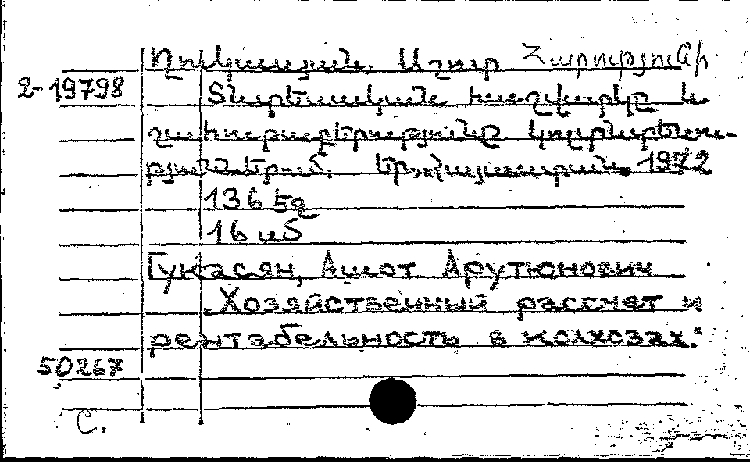 Ղուկասյան, Աշոտ Հարությունի
2-19798 Տնտեսական հաշվարկը և
շահութաբերությունը կոլտնտեսու-
թյուններում. Եր., Հայաստան, 1972
136 էջ
16 սմ
Гукасян, Ашот Арутюнович
„Хозяйственный рассчет и
рентабельность в колхозах."
50267
С.